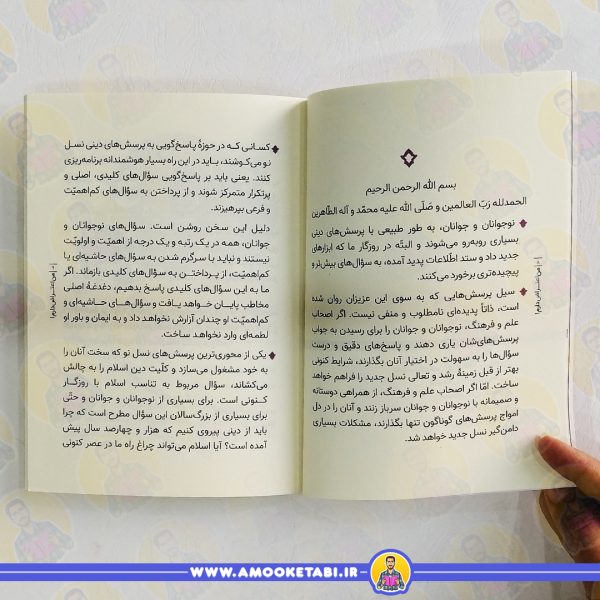 بسم الله الرحمن الرحیم
الحمدلله ربّ العالمین و صلّی الله علیه محمّد و آله الطّاهرین
نوجوانان و جوانان، به طور طبیعی با پرسش‌های دینی
بسیاری روبه‌رو می‌شوند و البتّه در روزگار ما که ابزارهای
جدید داد و ستد اطّلاعات پدید آمده، به سؤال‌های بیش‌تر و
پیچیده‌تری برخورد می‌کنند.
سیل پرسش‌هایی که به سوی این عزیزان روان شده
است، ذاتاً پدیده‌ای نامطلوب و منفی نیست. اگر اصحاب
علم و فرهنگ، نوجوانان و جوانان را برای رسیدن به جواب
پرسش‌های‌شان یاری دهند و پاسخ‌های دقیق و درست
سؤال‌ها را به سهولت در اختیار آنان بگذارند، شرایط کنونی
بهتر از قبل زمینهٔ رشد و تعالی نسل جدید را فراهم خواهد
ساخت. امّا اگر اصحاب علم و فرهنگ، از همراهی دوستانه
و صمیمانه با نوجوانان و جوانان سرباز زنند و آنان را در دل
امواج پرسش‌های گوناگون تنها بگذارند، مشکلات بسیاری
دامن‌گیر نسل جدید خواهد شد.
کسانی که در حوزهٔ پاسخ‌گویی به پرسش‌های دینی نسل
نو می‌کوشند، باید در این راه بسیار هوشمندانه برنامه‌ریزی
کنند. یعنی باید بر پاسخ‌گویی سؤال‌های کلیدی، اصلی و
پرتکرار متمرکز شوند و از پرداختن به سؤال‌های کم‌اهمیّت
و فرعی بپرهیزند.
دلیل این سخن روشن است. سؤال‌های نوجوانان و
جوانان، همه در یک رتبه و یک درجه از اهمیّت و اولویّت
نیستند و نباید با سرگرم شدن به سؤال‌های حاشیه‌ای یا
کم‌اهمیّت، از پرداختن به سؤال‌های کلیدی بازماند. اگر
ما به این سؤال‌های کلیدی پاسخ بدهیم، دغدغهٔ اصلی
مخاطب پایان خواهد یافت و سؤال‌های حاشیه‌ای و
کم‌اهمیّت او چندان آزارش نخواهد داد و به ایمان و باور او
لطمه‌ای وارد نخواهد ساخت.
یکی از محوری‌ترین پرسش‌های نسل نو که سخت آنان را
به خود مشغول می‌سازد و کلّیت دین اسلام را به چالش
می‌کشاند، سؤال مربوط به تناسب اسلام با روزگار
کنونی است. برای بسیاری از نوجوانان و جوانان و حتّی
برای بسیاری از بزرگ‌سالان این سؤال مطرح است که چرا
باید از دینی پیروی کنیم که هزار و چهارصد سال پیش
آمده است؟ آیا اسلام می‌تواند چراغ راه ما در عصر کنونی
WWW.AMOOKETABI.IR